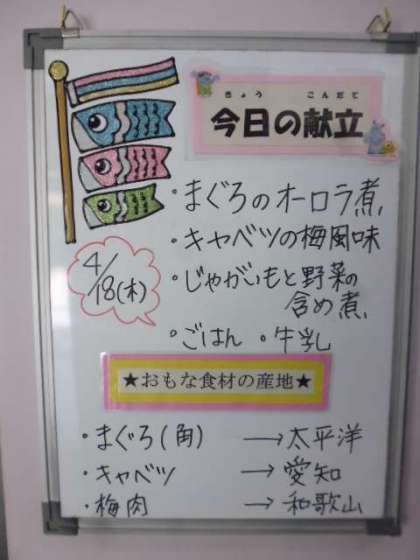 きょう　こんだて
今日の献立
・まぐろのオーロラ煮
・キャベツの梅風味
・じゃがいもと野菜の
含め煮
・ごはん ・牛乳
4/18(木)
★おもな食材の産地★
・まぐろ(角) →太平洋
・キャベツ →愛知
・梅肉 →和歌山